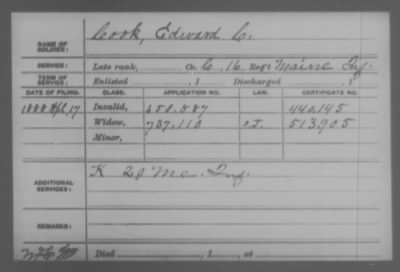 NAME OF SOLDIER: Cook, Edward C.
SERVICE: Late rank, Co. C, 16 Reg't Maine Inf.
TERM OF SERVICE: Enlisted , 1 Discharged , 1
DATE OF FILING. CLASS. APPLICATION NO. LAW. CERTIFICATE NO.
1888 Apl, 17 Invalid, 650.887 440.145
Widow, 737.110 O.I. 513.905
Minor,
ADDITIONAL SERVICES: K 20 Me. Inf.
REMARKS:
Died , 1 , at